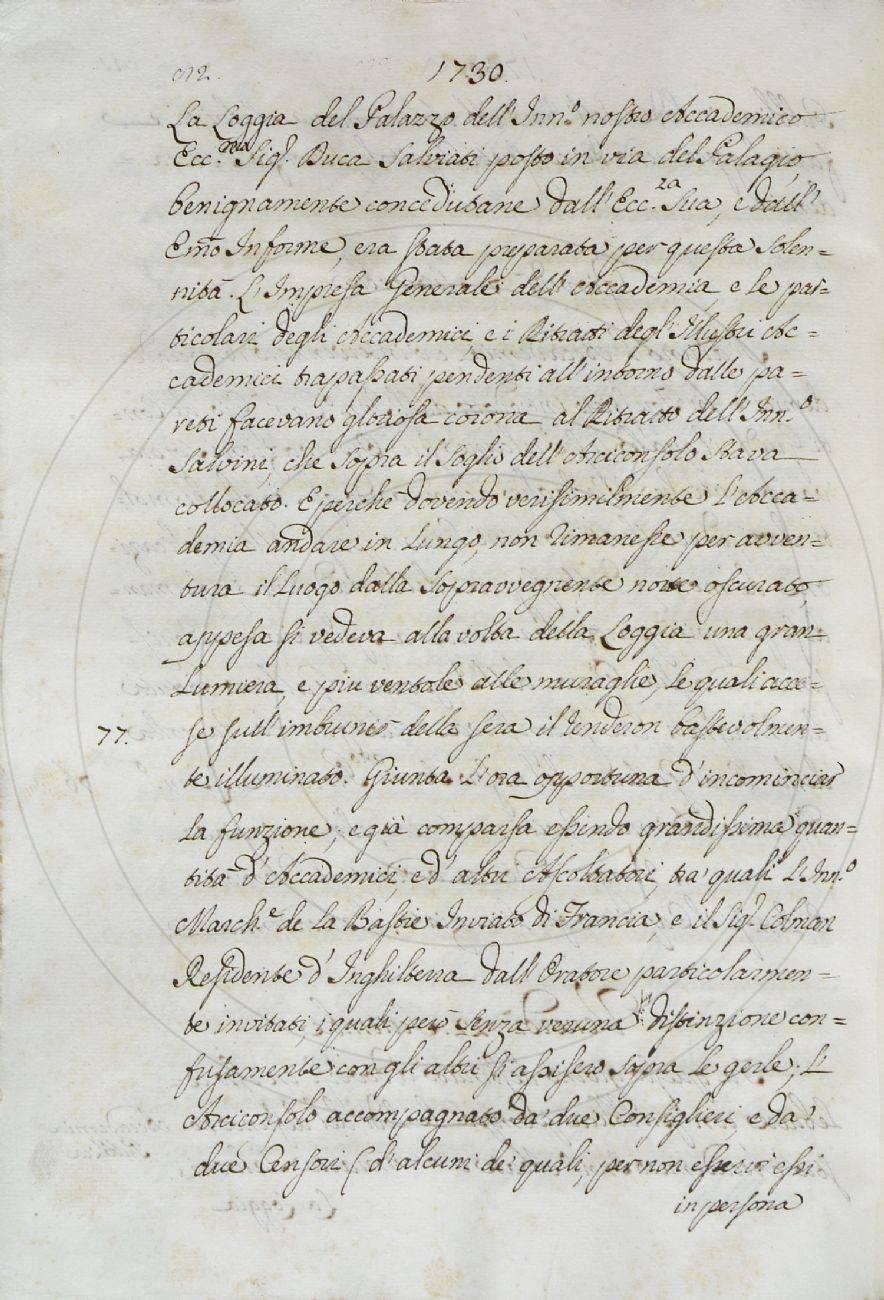 1730.
La Loggia del Palazzo dell'Inn.º nostro Accademico
Ecc.mo Sig.r Duca Salviati posto in via del Palagio,
benignamente concedutane dall'Ecc.za Sua, e dall'
Emõ Informe, era stata preparata per questa solen=
nità. L'Impresa Generale dell'Accademia, e le par=
ticolari degli Accademici, e i Ritratti degl'Illustri Ac=
cademici trapassati pendenti all'intorno dalle pa=
reti facevano gloriosa corona al Ritratto dell'Inn.º
Salvini, che sopra il soglio dell'Arciconsolo stava
collocato. E perchè dovendo verisimilmente l'Acca=
demia andare in lungo, non rimanesse per avven=
tura il luogo dalla sopravvegnente notte oscurato,
appesa si vedeva alla volta della Loggia una gran
lumiera, e più ventole alle muraglie, le quali acce=
77.
se sull'imbrunir della sera il renderon bastevolmen=
te illuminato. Giunta l'ora opportuna d'incominciar
la funzione, e già comparsa essendo grandissima quan=
tità d'Accademici, ed altri Ascoltatori, tra' quali l'Inn.º
March.e de la Bastie Inviato di Francia, e il Sig.r Colman
Residente d'Inghilterra dall'Oratore particolarmen=
te invitati, i quali però senza veruna distinzione con=
fusamente con gli altri si assisero sopra le gerle; L'
Arciconsolo accompagnato da' due Consiglieri, e da'
due Censori (d'alcuni de' quali, per non esservi essi
in persona